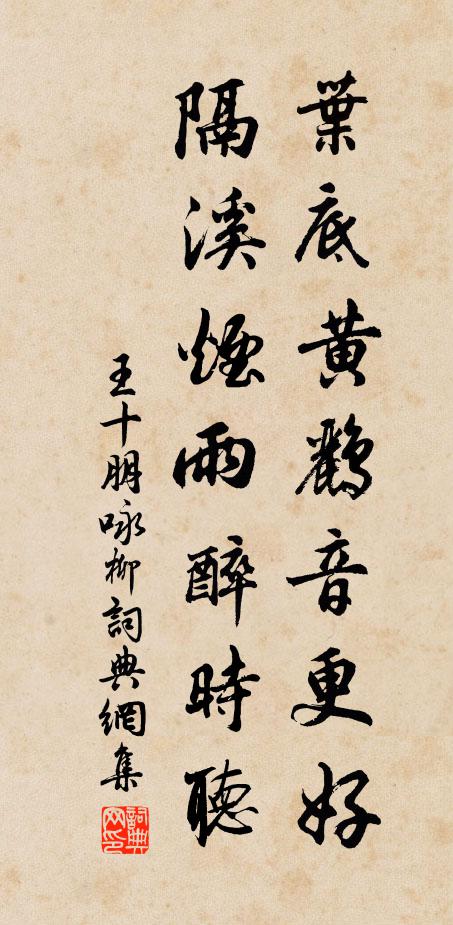 葉底黄鸝音更好
隔溪煙雨醉時聽
王十朋咏柳詞典網集
詞典
网印